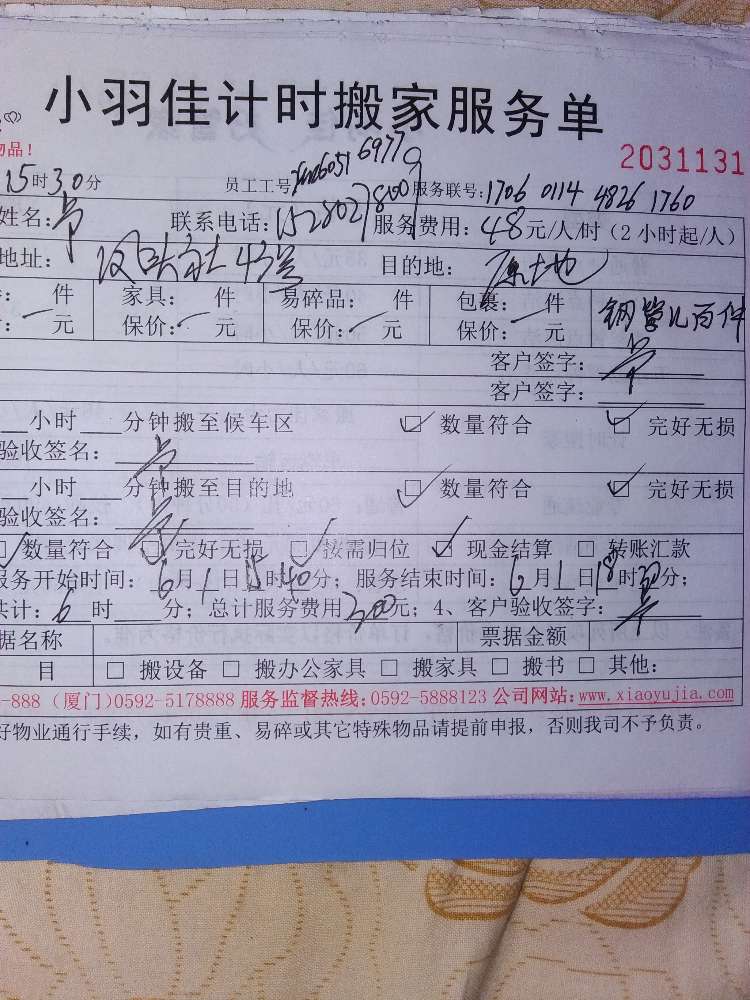 小羽佳计时搬家服务单
物品！
2031131
15时30分 员工工号 服务联号：1706 0114 4826 1760
姓名： 联系电话： 服务费用：48元/人/时（2小时起/人）
地址： 43号 目的地：原地
件 家具： 件 易碎品： 件 包裹： 件 钢管几百件
元 保价： 元 保价： 元 保价： 元
客户签字：
客户签字：
小时 分钟搬至候车区 数量符合 完好无损
验收签名：
小时 分钟搬至目的地 数量符合 完好无损
验收签名：
数量符合 完好无损 按需归位 现金结算 转账汇款
服务开始时间：6月1日15时40分；服务结束时间：6月1日18时 分；
共计：6时 分；总计服务费用300元；4、客户验收签字：
据名称 票据金额
目 搬设备 搬办公家具 搬家具 搬书 其他：
-888（厦门）0592-5178888 服务监督热线：0592-5888123 公司网站：www.xiaoyujia.com
好物业通行手续，如有贵重、易碎或其它特殊物品请提前申报，否则我司不予负责。